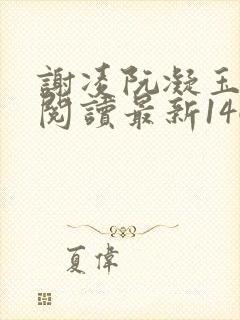 謝凌阮凝玉
閱讀最新140
夏偉